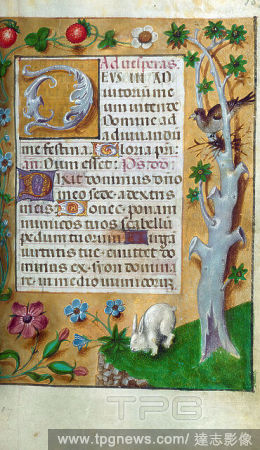 Ad vesperas.
EUS IN AD
iutorium me
um intende
Domine ad
adiuvandū
me festina. Gloria pri.
an. Dum esset: Ps. dd.
Dixit dominus dño
meo sede a dextris
meis. Donec ponam
inimicos tuos scabellū
pedum tuorum. Virga
virtutis tue emittet do
minus ex sion domina
re in medio inimicorū
TPG
www.tpgnews.com/達志影像